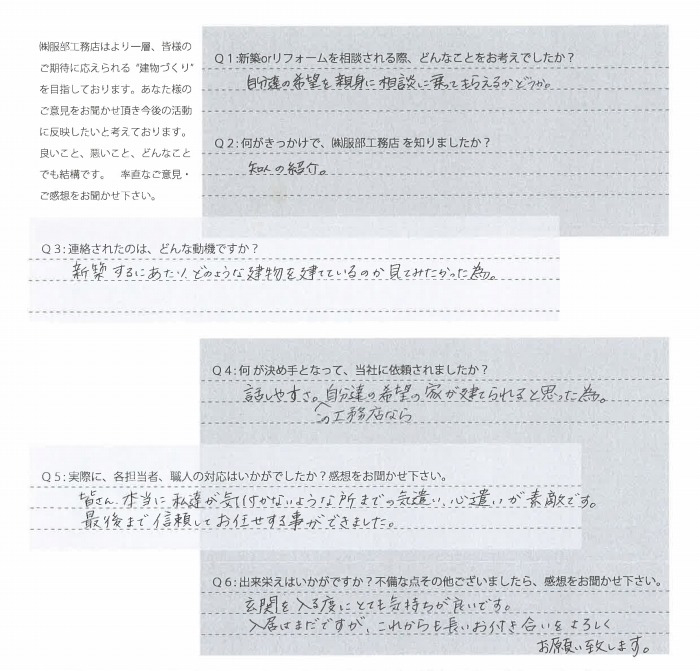 ㈱服部工務店はより一層、皆様の
ご期待に応えられる“建物づくり”
を目指しております。あなた様の
ご意見をお聞かせ頂き今後の活動
に反映したいと考えております。
良いこと、悪いこと、どんなこと
でも結構です。　率直なご意見・
ご感想をお聞かせ下さい。
Q1:新築orリフォームを相談される際、どんなことをお考えでしたか？
自分達の希望を親身に相談に乗って貰えるかどうか。
Q2:何がきっかけで、㈱服部工務店 を知りましたか？
知人の紹介。
Q3:連絡されたのは、どんな動機ですか？
新築するにあたり、どのような建物を建てているのか見てみたかった為。
Q4:何 が決め手となって、当社に依頼されましたか？
話しやすさ。自分達の希望の家が建てられると思った為。
この工務店なら
Q5:実際に、各担当者、職人の対応はいかがでしたか？感想をお聞かせ下さい。
皆さん、本当に私達が気付かないような所までの気遣い、心遣いが素敵です。
最後まで信頼してお任せする事ができました。
Q6:出来栄えはいかがですか？不備な点その他ございましたら、感想をお聞かせ下さい。
玄関を入る度にとても気持ちが良いです。
入居はまだですが、これからも長いお付き合いをよろしく
お願い致します。